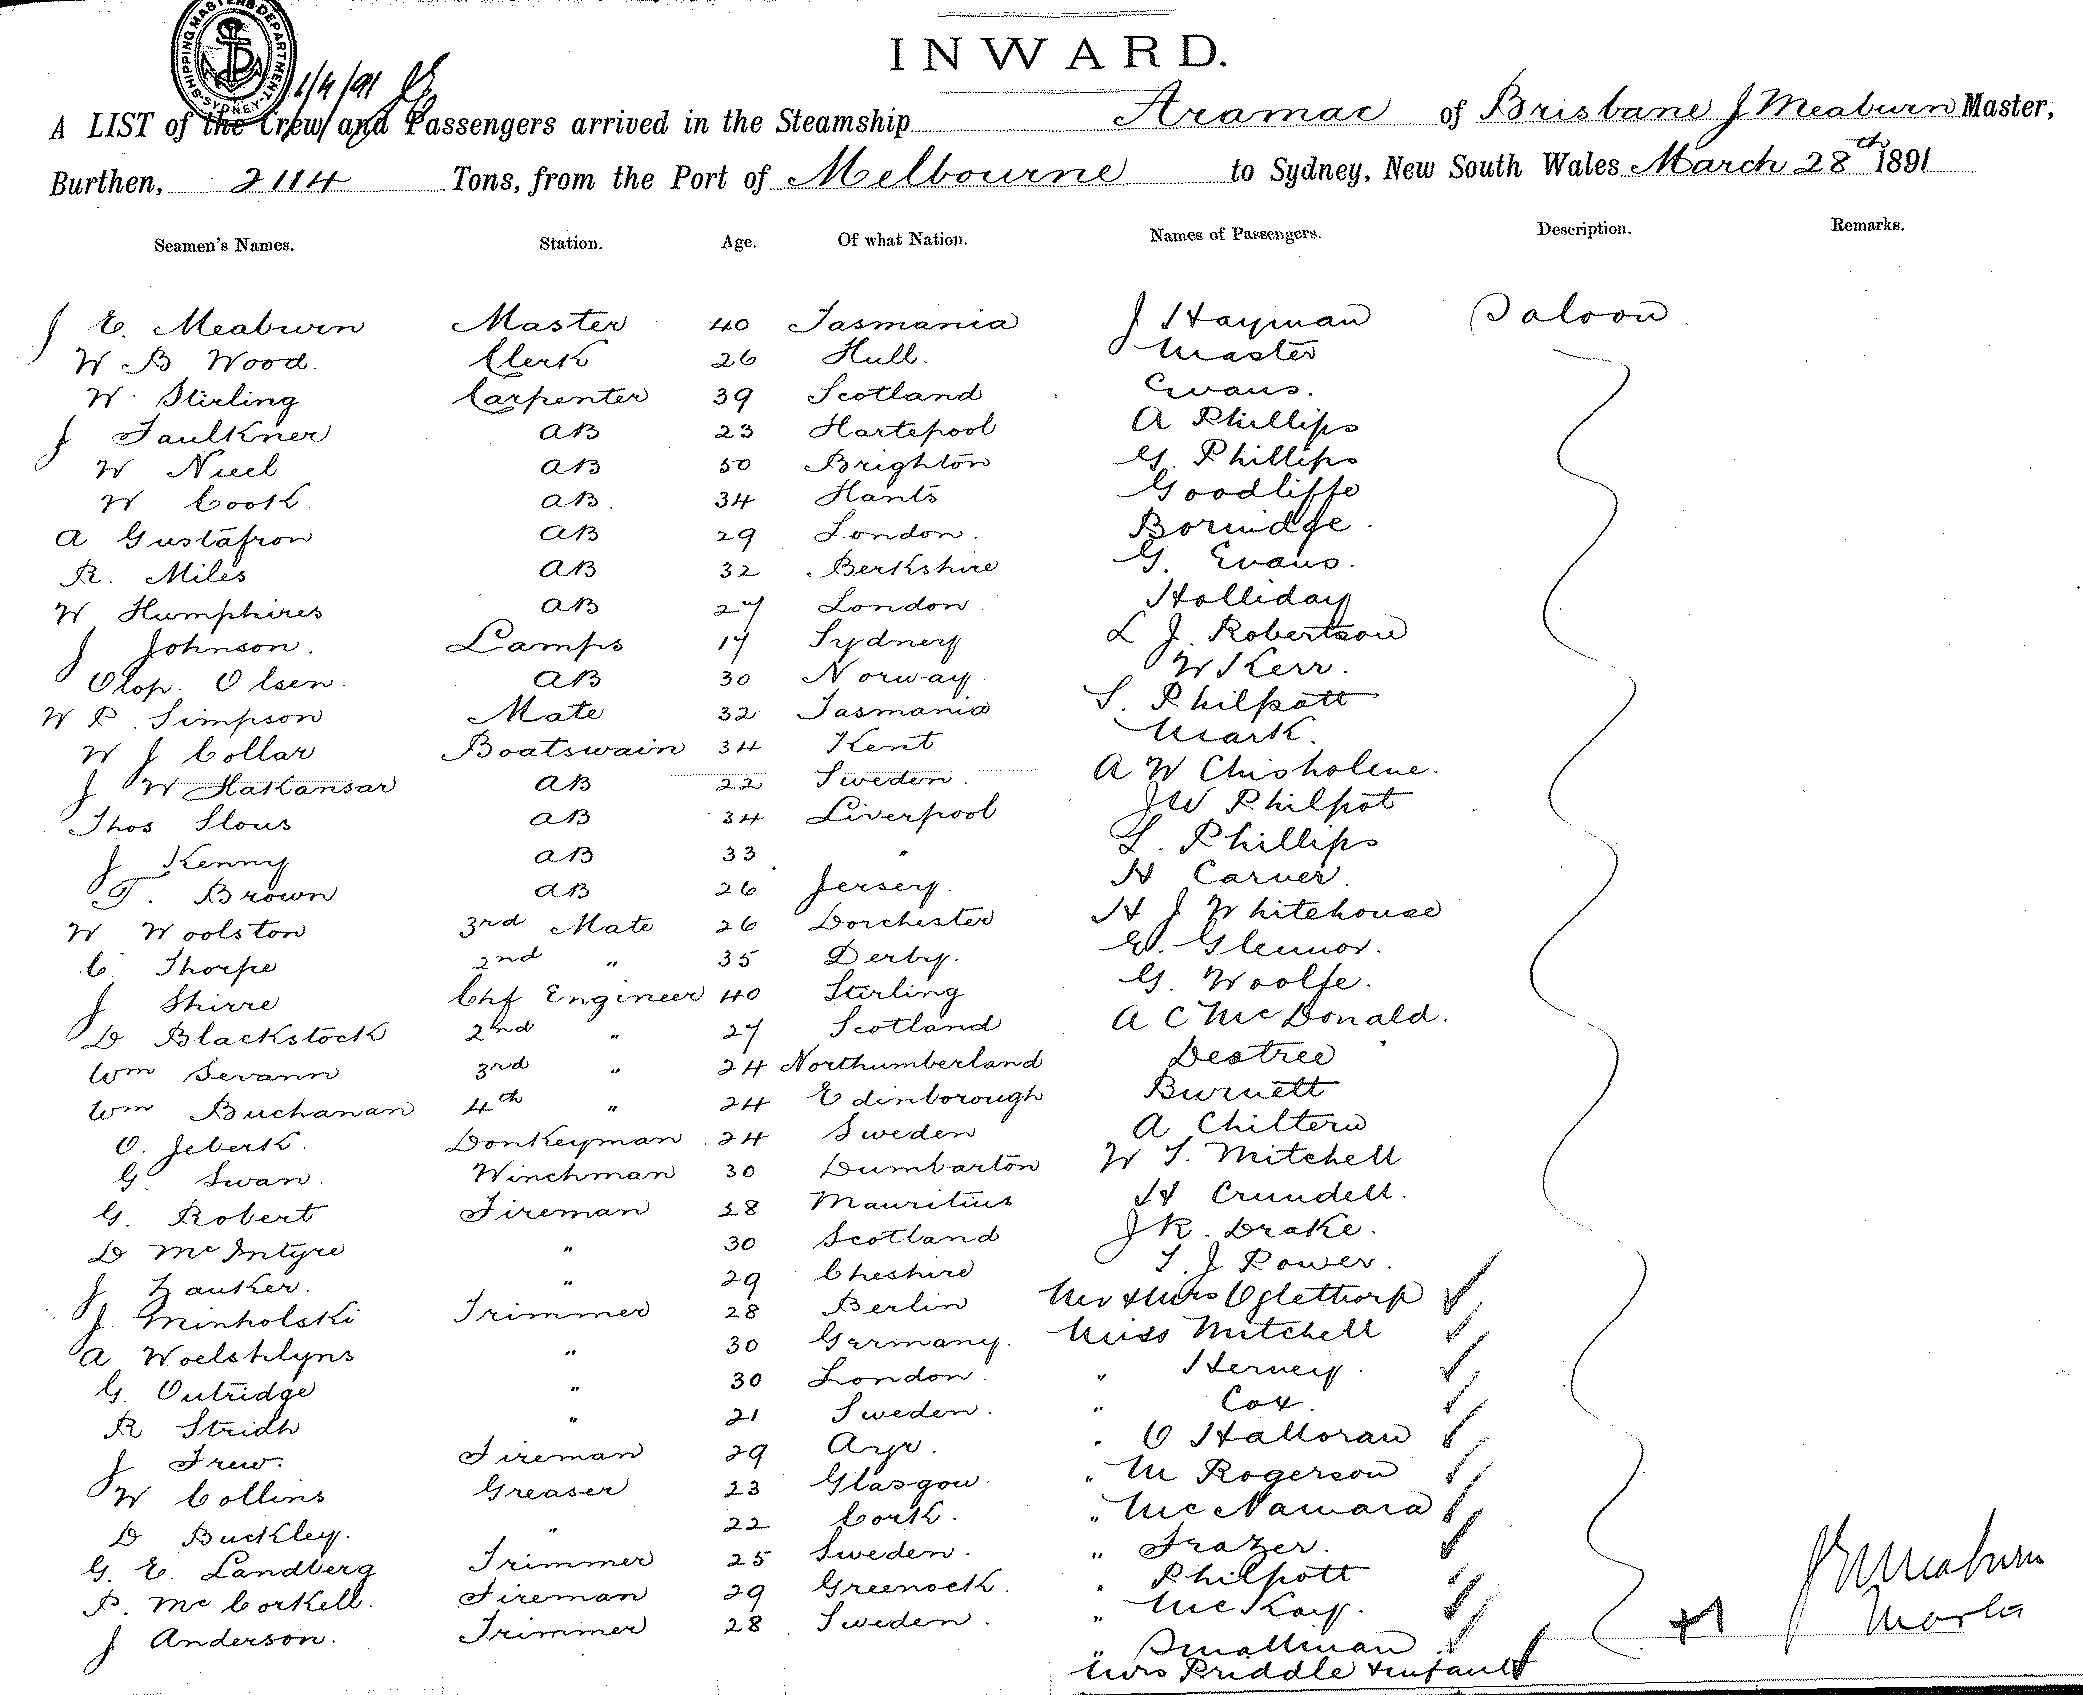 SHIPPING MASTERS DEPARTMENT SYDNEY
1/4/91
INWARD.
A LIST of the Crew and Passengers arrived in the Steamship Aramac of Brisbane J Meaburn Master,
Burthen, 2114 Tons, from the Port of Melbourne to Sydney, New South Wales March 28th 1891
Seamen's Names. Station. Age. Of what Nation. Names of Passengers. Description. Remarks.
J E. Meaburn Master 40 Tasmania J Hayman Saloon
W B Wood. Clerk 26 Hull. Master
W. Stirling Carpenter 39 Scotland Evans.
J Faulkner AB 23 Hartepool A Phillips
W Nuel AB 50 Brighton G. Phillips
W Cook. AB. 34 Hants Goodliffe
A Gustafron AB 29 London. Borridge.
R. Miles AB 32 Berkshire G. Evans.
W Humphires AB 27 London Holliday
J Johnson. Lamps 17 Sydney L J. Robertson
Olop. Olsen. AB 30 Norway W Kerr.
W P. Simpson Mate 32 Tasmania S. Philpott
W J Collar Boatswain 34 Kent Mark.
J W Hakansar AB 22 Sweden. A W Chisholme.
Thos Slous AB 34 Liverpool JW Philpot
J Kenny AB 33 " L. Phillips
T. Brown AB 26 Jersey. H Carver.
W Woolston 3rd Mate 26 Dorchester H J Whitehouse
C. Thorpe 2nd " 35 Derby. E. Glennor.
J Shirre Chf Engineer 40 Stirling G. Woolfe.
D Blackstock 2nd " 27 Scotland A C McDonald.
Wm Sevann 3rd " 24 Northumberland Destree
Wm Buchanan 4th " 24 Edinborough Burnett
O. Jeberk. Donkeyman 24 Sweden A Chiltern
G. Swan. Winchman 30 Dumbarton W S. Mitchell
G. Robert Fireman 28 Mauritius H Crundell.
D McIntyre " 30 Scotland J R. Drake.
J Zauker. " 29 Cheshire T. J Power.
J. Minholski Trimmer 28 Berlin Mr & Mrs Oglethorp
A Woelshlyns " 30 Germany. Miss Mitchell
G. Outridge " 30 London. " Herney.
R Stridh " 21 Sweden. " Cox.
J Frew. Fireman 29 Ayr. " O Halloran
W Collins Greaser 23 Glasgow. " M Rogerson
D Buckley. " 22 Cork. " McNamara
G. E. Landberg Trimmer 25 Sweden. " Frazer.
P. McCorkell. Fireman 29 Greenock. " Philpott
J Anderson. Trimmer 28 Sweden. " McKay.
" Smallman
Mrs Priddle & infant
+1
J E Meaburn
Master